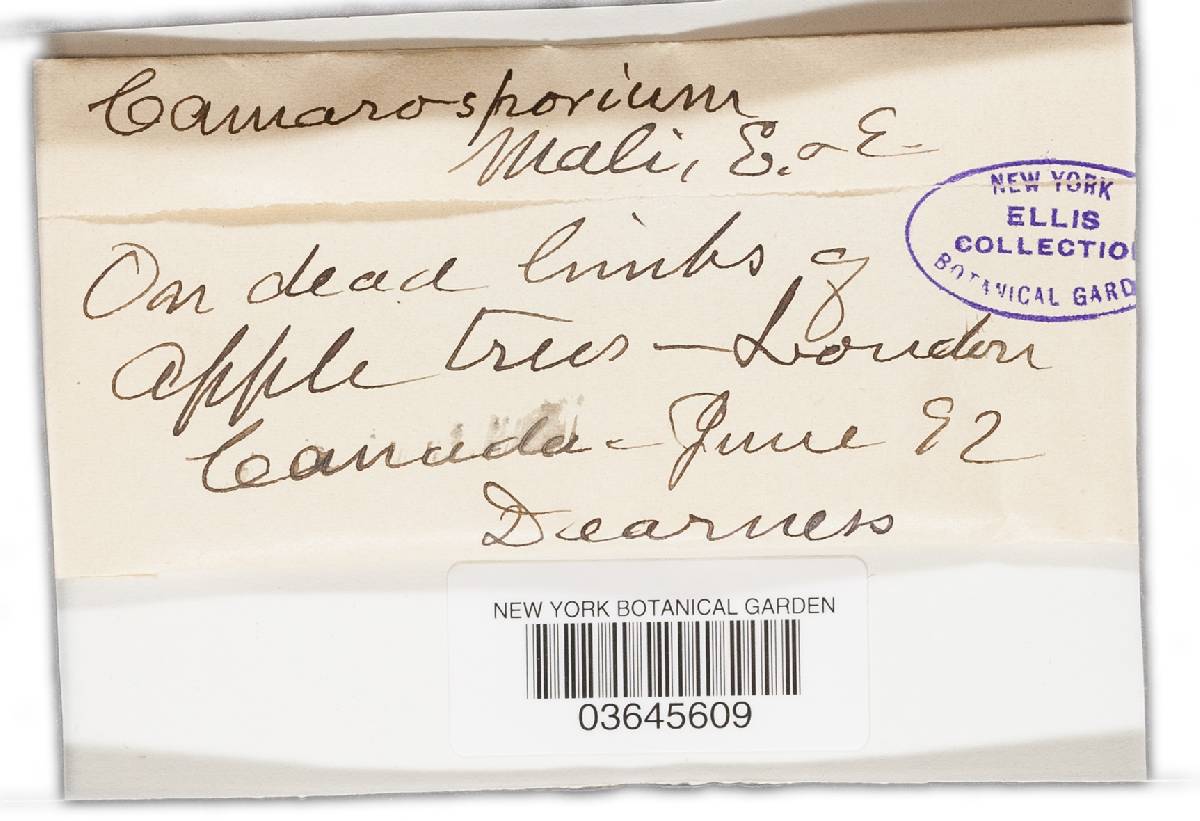 Camarosporium
Mali, E. & E.
NEW YORK
ELLIS
COLLECTIO
BOTANICAL GARD
On dead limbs of
apple trees — London
Canada - June 92
Dearness
NEW YORK BOTANICAL GARDEN
03645609